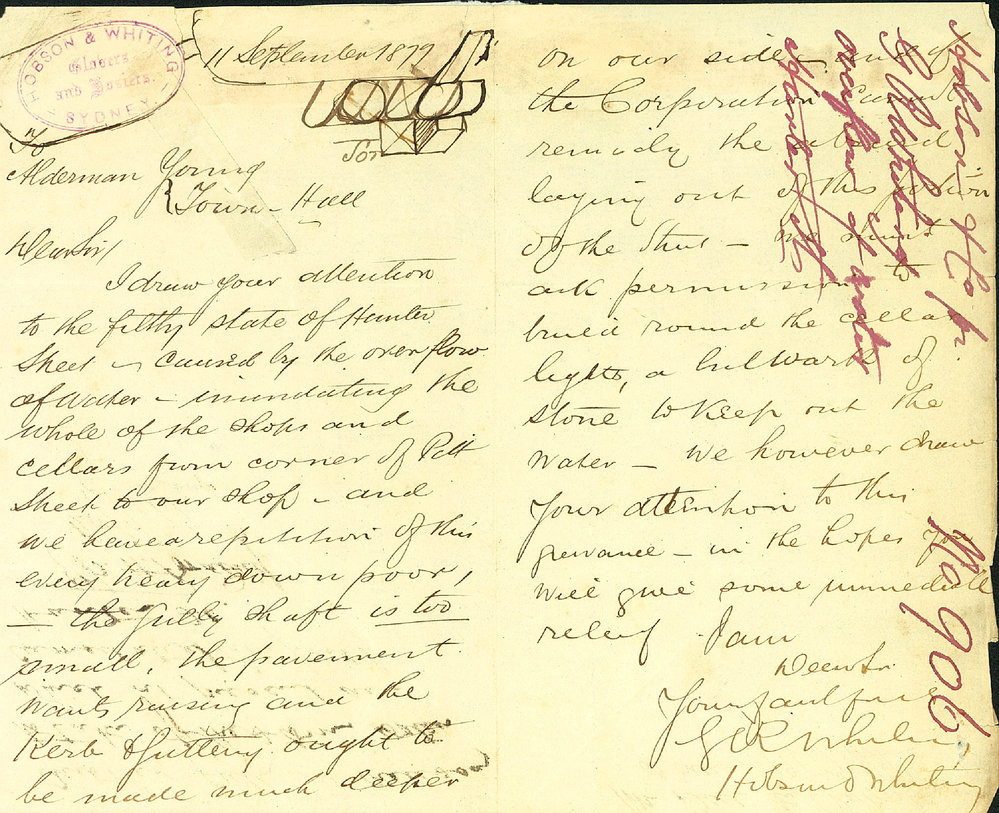 HOBSON & WHITING
Glovers
and Hosiers.
SYDNEY.
11 September 1879
To
Alderman Young
Town-Hall
Dear Sir
I draw your attention
to the filthy state of Hunter
Street - caused by the overflow
of water - inundating the
whole of the shops and
cellars from corner of Pitt
Street to our shop - and
we have a repitition of this
every heavy down poor,
- the Gully Shaft is too
small, the pavement
wants raising and the
Kerb & guttering ought to
be made much deeper
on our side and if
the Corporation cannot
remidy the
laying out of this portion
of the Street - we must
ask permission to
build round the cellar
lights, a bulwark of
stone to keep out the
water - We however draw
Your attention to this
grievance - in the hopes you
will give some immediate
relief I am
Dear Sir
Your faithful
G R Whiting
Hobson & Whiting
Hobson & Co pr
G R Whiting
overflow of water
Hunter St
No 906